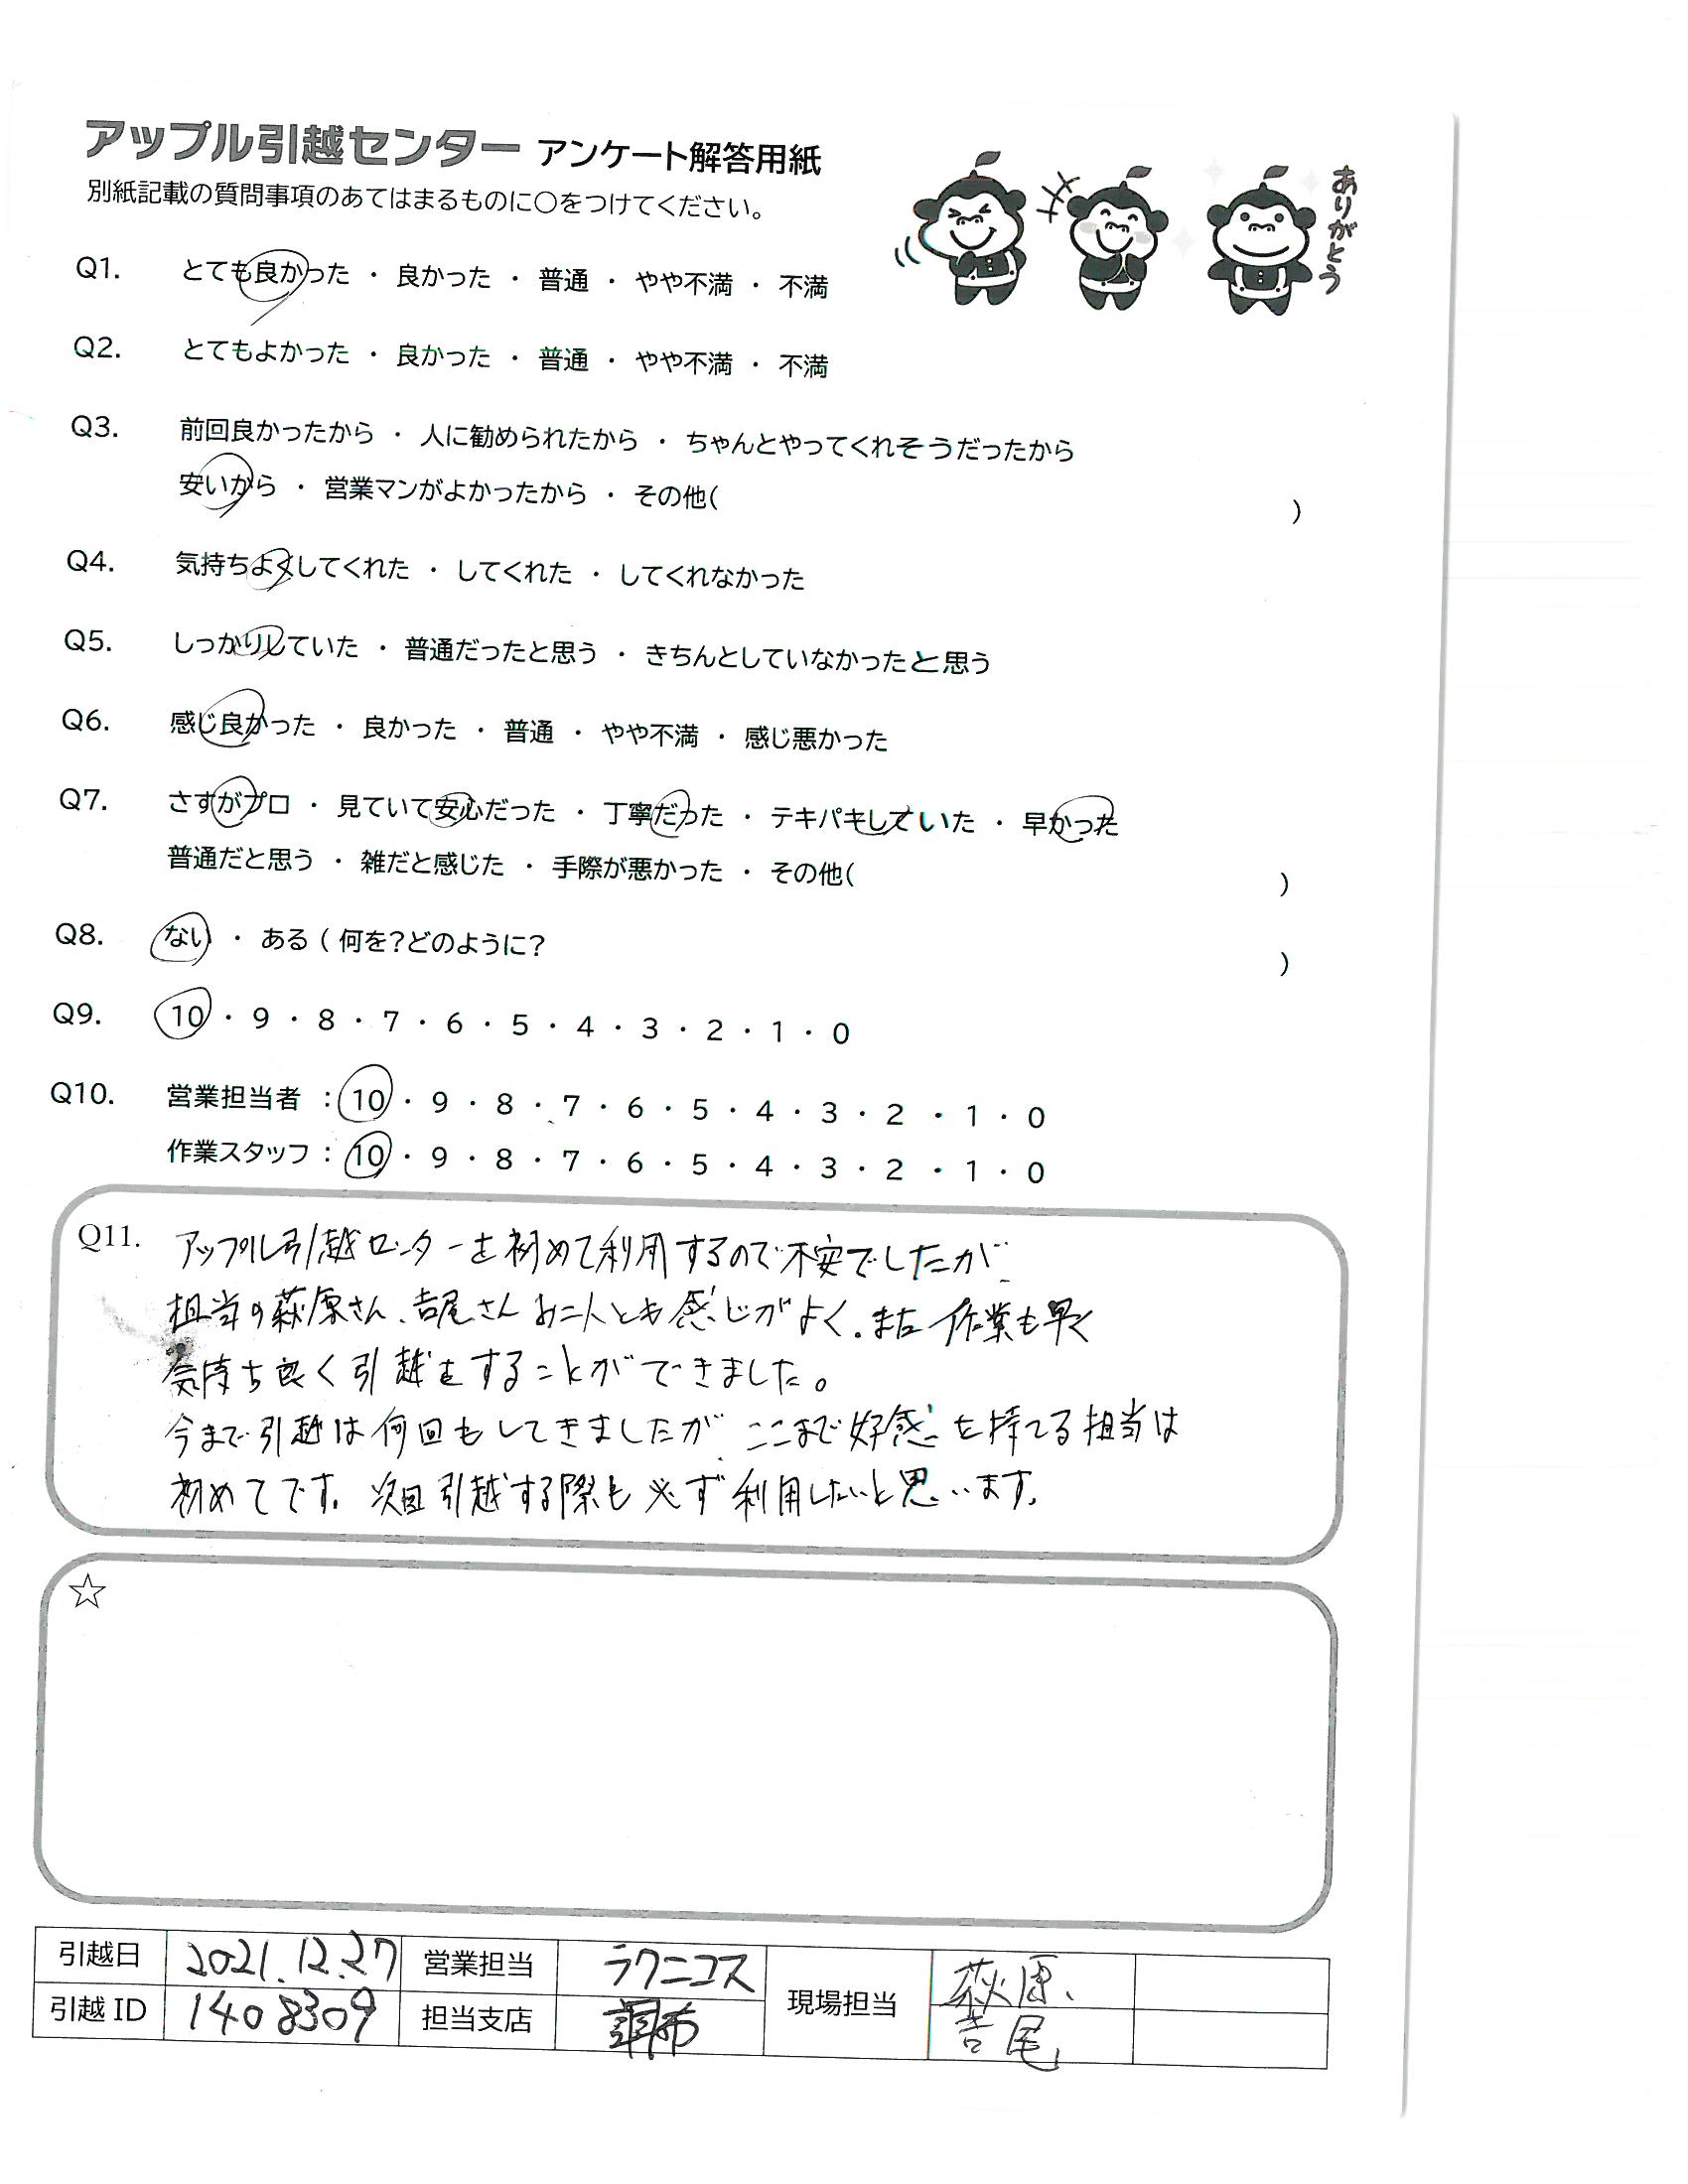 アップル引越センター アンケート解答用紙
別紙記載の質問事項のあてはまるものに○をつけてください。
ありがとう
Q1. とても良かった ・ 良かった ・ 普通 ・ やや不満 ・ 不満
Q2. とてもよかった ・ 良かった ・ 普通 ・ やや不満 ・ 不満
Q3. 前回良かったから ・ 人に勧められたから ・ ちゃんとやってくれそうだったから
安いから ・ 営業マンがよかったから ・ その他( )
Q4. 気持ちよくしてくれた ・ してくれた ・ してくれなかった
Q5. しっかりしていた ・ 普通だったと思う ・ きちんとしていなかったと思う
Q6. 感じ良かった ・ 良かった ・ 普通 ・ やや不満 ・ 感じ悪かった
Q7. さすがプロ ・ 見ていて安心だった ・ 丁寧だった ・ テキパキしていた ・ 早かった
普通だと思う ・ 雑だと感じた ・ 手際が悪かった ・ その他( )
Q8. ない ・ ある ( 何を?どのように? )
Q9. 10 ・ 9 ・ 8 ・ 7 ・ 6 ・ 5 ・ 4 ・ 3 ・ 2 ・ 1 ・ 0
Q10. 営業担当者 : 10 ・ 9 ・ 8 ・ 7 ・ 6 ・ 5 ・ 4 ・ 3 ・ 2 ・ 1 ・ 0
作業スタッフ : 10 ・ 9 ・ 8 ・ 7 ・ 6 ・ 5 ・ 4 ・ 3 ・ 2 ・ 1 ・ 0
Q11. アップル引越センターを初めて利用するので不安でしたが、
担当の萩原さん、吉尾さんお二人とも感じがよく、また作業も早く
気持ち良く引越をすることができました。
今まで引越は何回もしてきましたが、ここまで好感を持てる担当は
初めてです。次回引越する際も必ず利用したいと思います。
☆
引越日 2021.12.27 営業担当 ラクニコス 現場担当 萩原、
引越 ID 1408309 担当支店 調布 吉尾